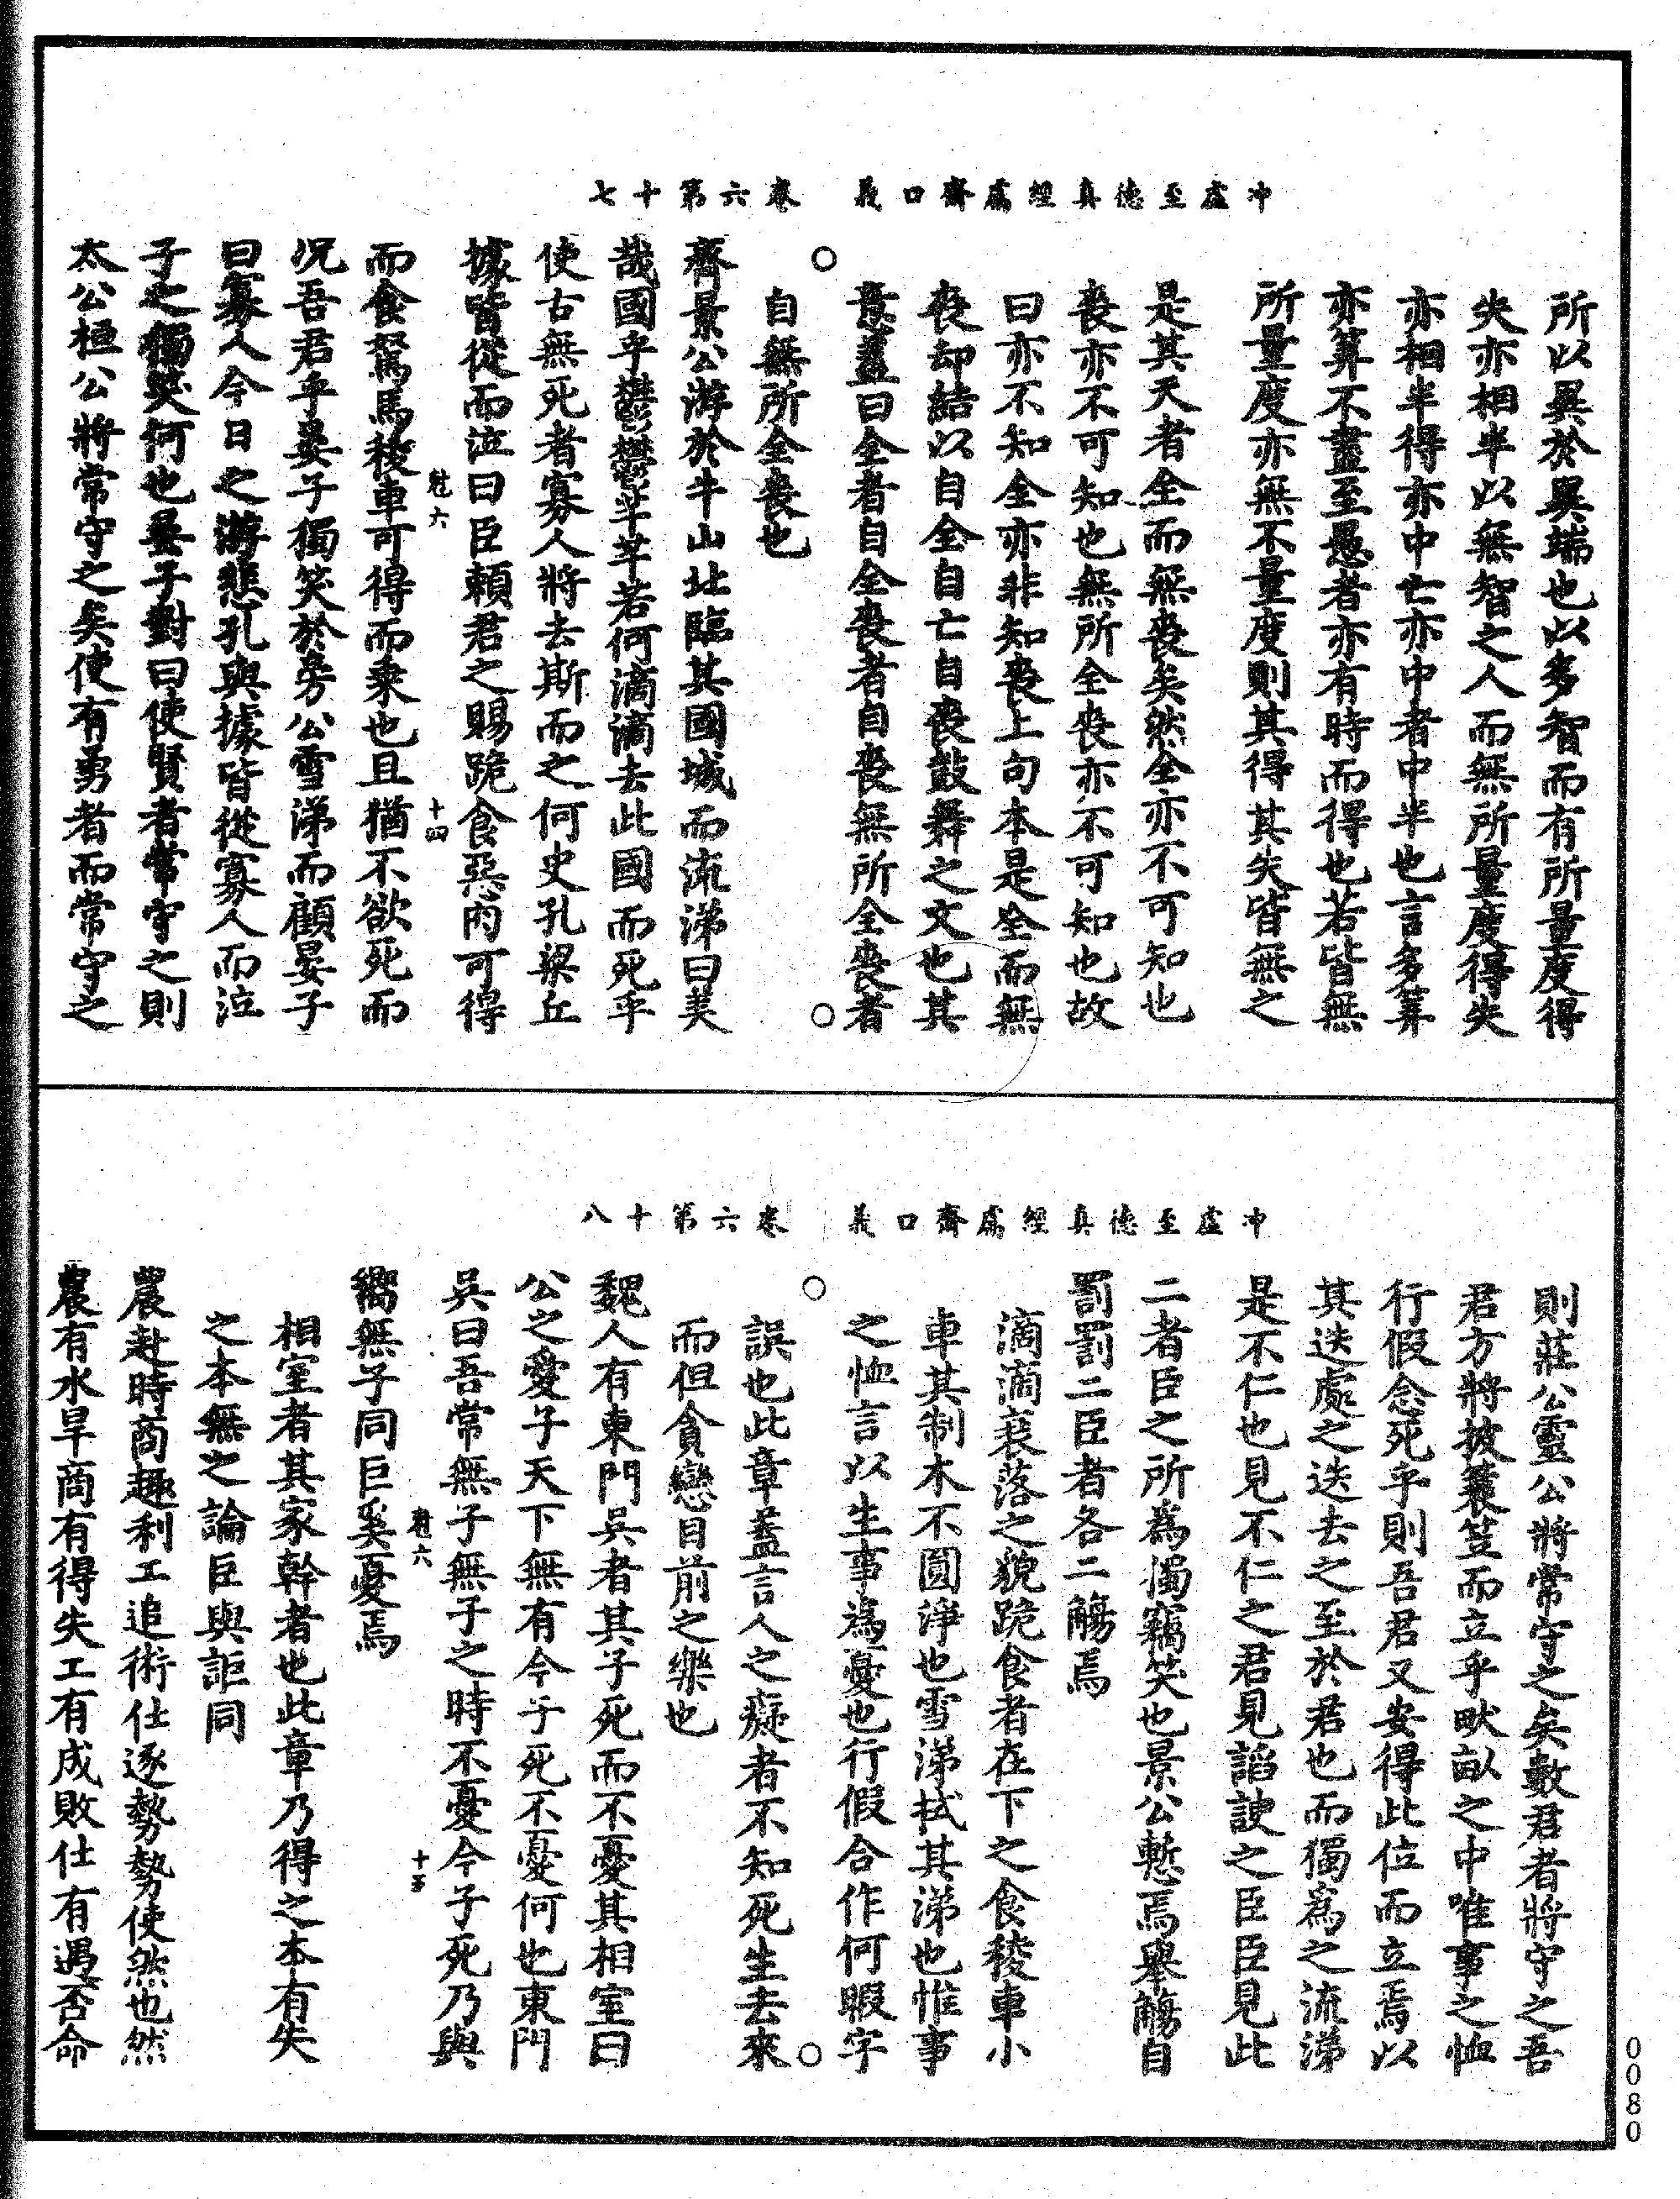 冲虛至德真經鬳齋口義　卷六第十七
所以異於異端也以多智而有所量度得
失亦相半以無智之人而無所量度得失
亦相半得亦中亡亦中中者中半也言多筭
亦筭不盡至愚者亦有時而得也若皆無
所量度亦無不量度則其得其失皆無之
是其天者全而無喪矣然全亦不可知也
喪亦不可知也無所全喪亦不可知也故
曰亦不知全亦非知喪上句本是全而無
喪却結以自全自亡自喪鼓舞之文也其
意蓋曰全者自全喪者自喪無所全喪者
自無所全喪也
齊景公游於牛山北臨其國城而流涕曰美
哉國乎鬱鬱芊芊若何滴滴去此國而死乎
使古無死者寡人將去斯而之何史孔梁丘
據皆從而泣曰臣賴君之賜跪食惡肉可得
尅六　十四
而食駑馬稜車可得而乘也且猶不欲死而
况吾君乎晏子獨笑於旁公雪涕而顧晏子
曰寡人今日之游悲孔與據皆從寡人而泣
子之獨笑何也晏子對曰使賢者常守之則
太公桓公將常守之矣使有勇者而常守之
冲虛至德真經鬳齋口義　卷六第十八
則莊公靈公將常守之矣數君者將守之吾
君方將披蓑笠而立乎畎畝之中唯事之恤
行假念死乎則吾君又安得此位而立焉以
其迭處之迭去之至於君也而獨為之流涕
是不仁也見不仁之君見諂諛之臣臣見此
二者臣之所為獨竊笑也景公慙焉舉觴自
罰罰二臣者各二觴焉
滴滴衰落之貌跪食者在下之食稜車小
車其制木不圓淨也雪涕拭其涕也惟事
之恤言以生事為憂也行假合作何暇字
誤也此章蓋言人之癡者不知死生去來
而但貪戀目前之樂也
魏人有東門吳者其子死而不憂其相室曰
公之愛子天下無有今子死不憂何也東門
吳曰吾常無子無子之時不憂今子死乃與
尅六　十五
嚮無子同臣奚憂焉
相室者其家幹者也此章乃得之本有失
之本無之論臣與詎同
農赴時商趣利工追術仕逐勢勢使然也然
農有水旱商有得失工有成敗仕有遇否命
0080